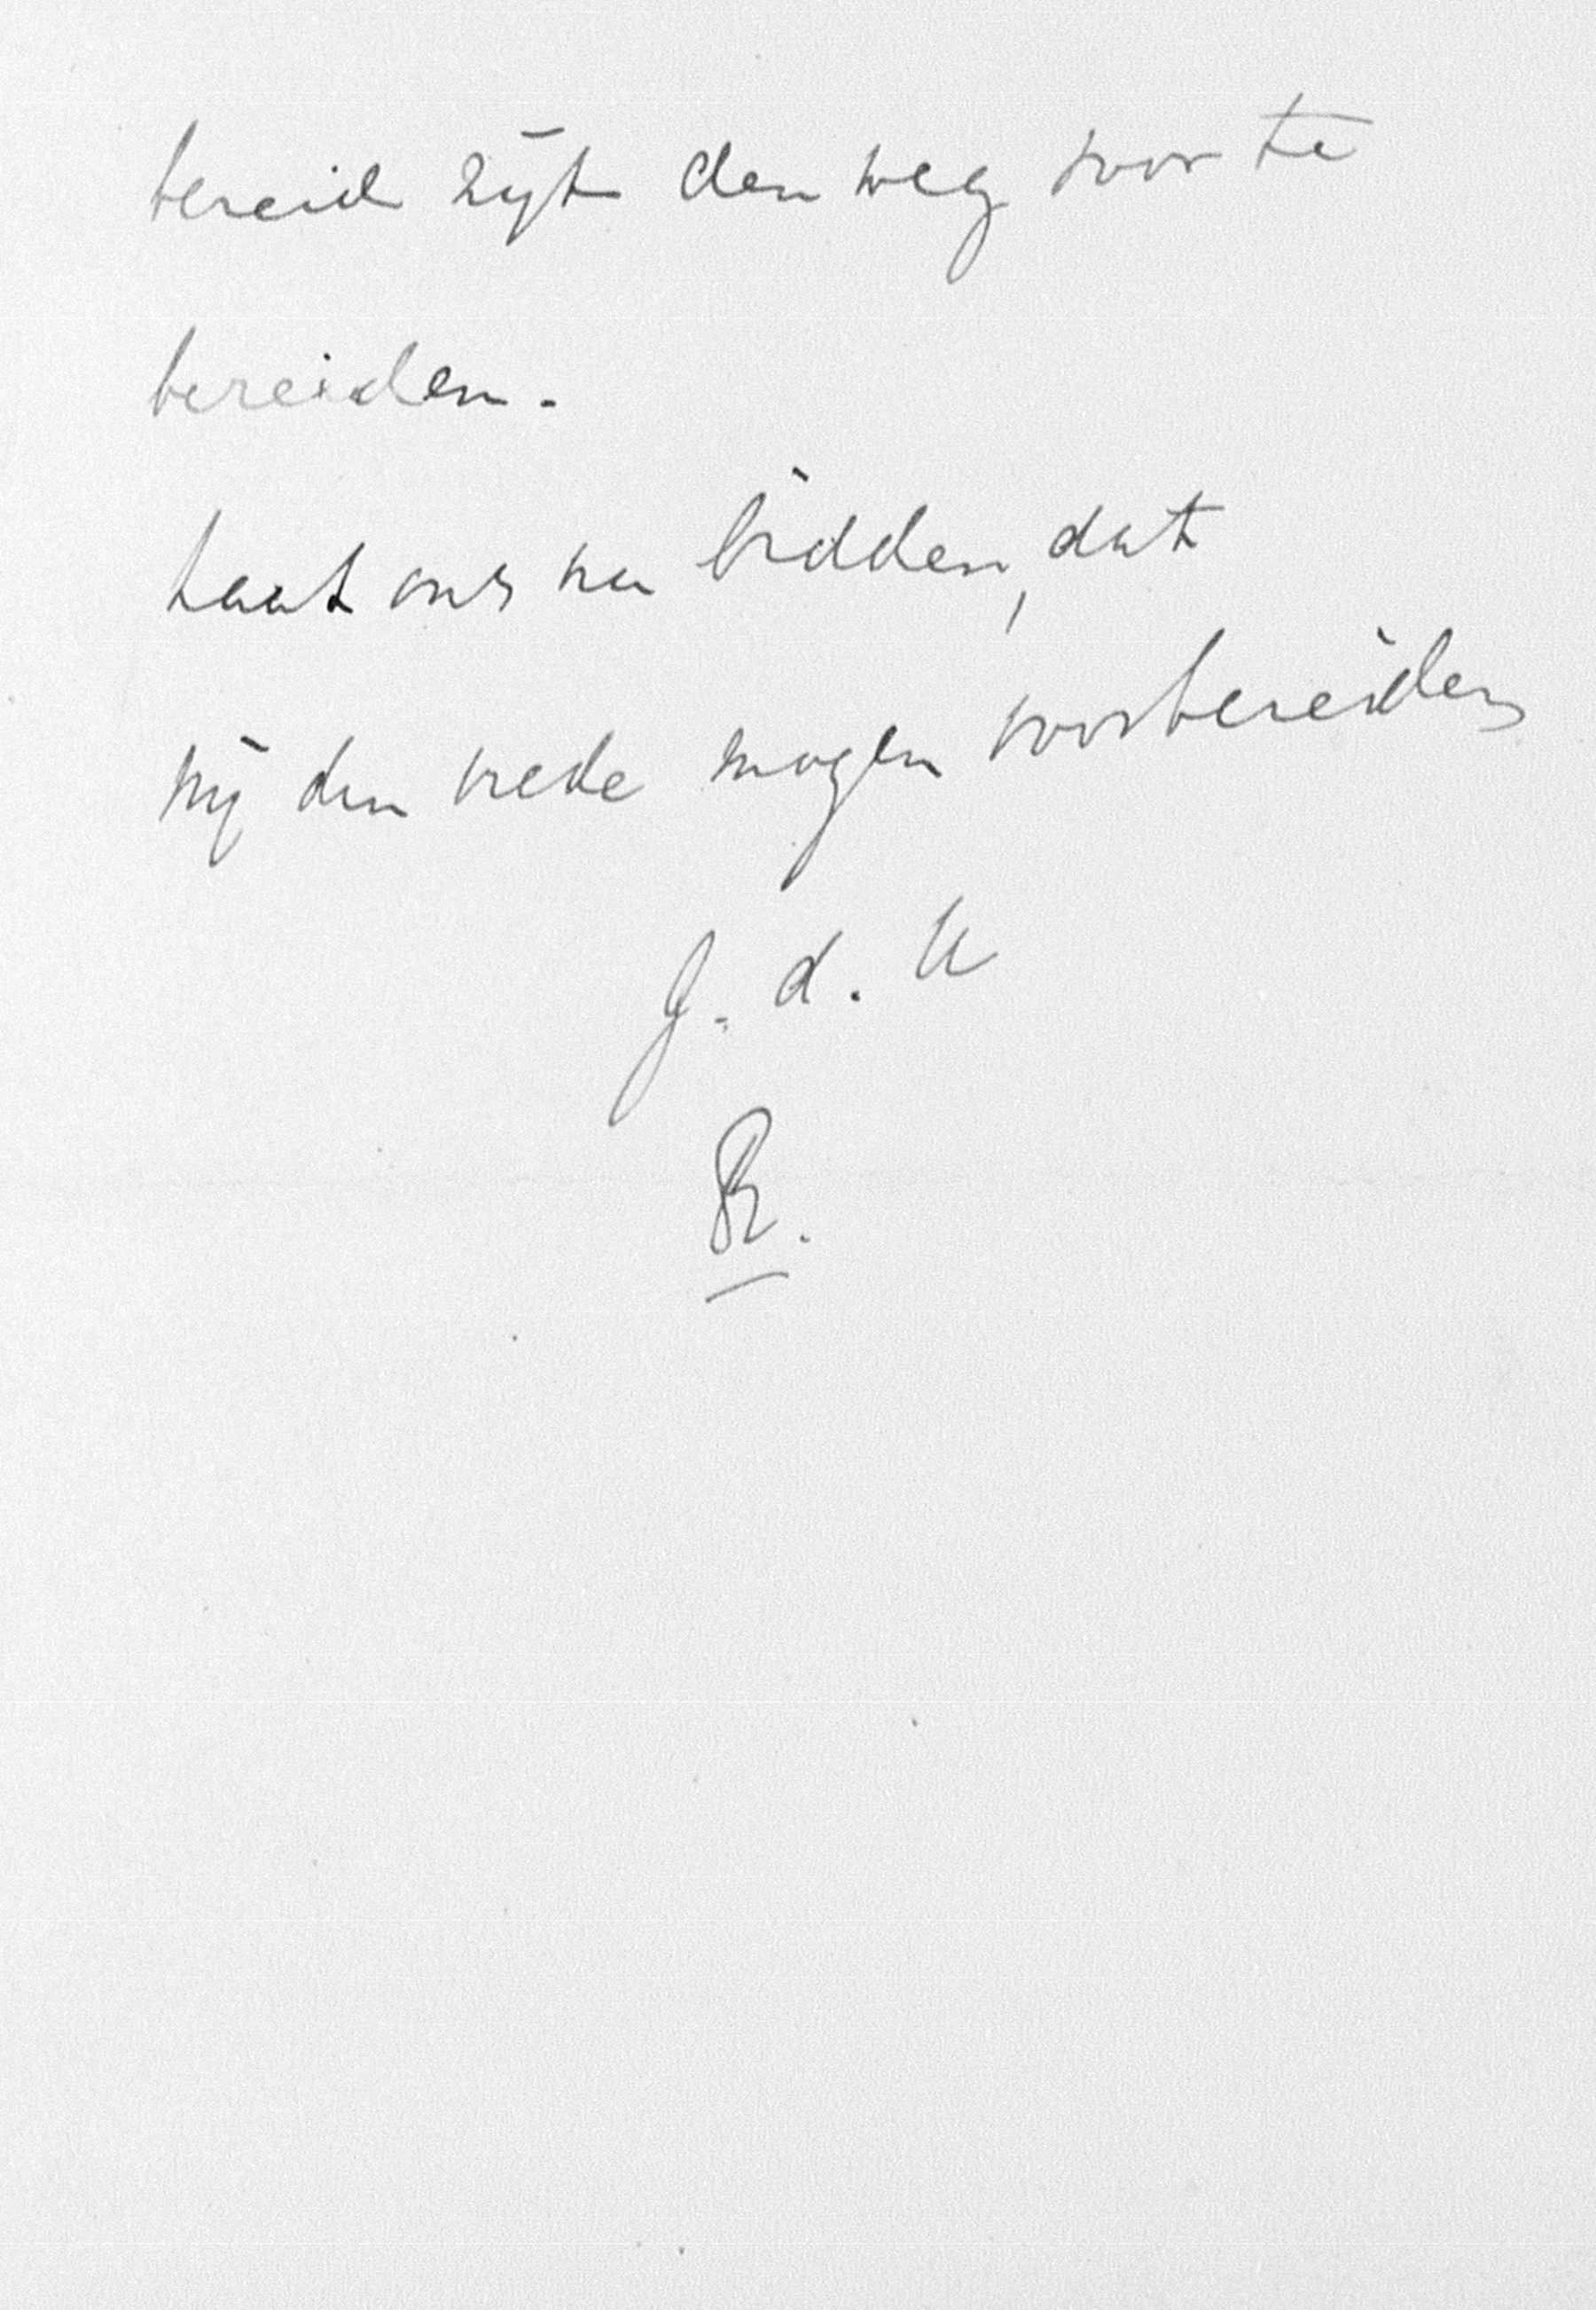 bereid zijt den weg voor te
bereiden.
Laat ons nu bidden, dat
wij den vrede mogen voorbereiden
J. d. U
R.